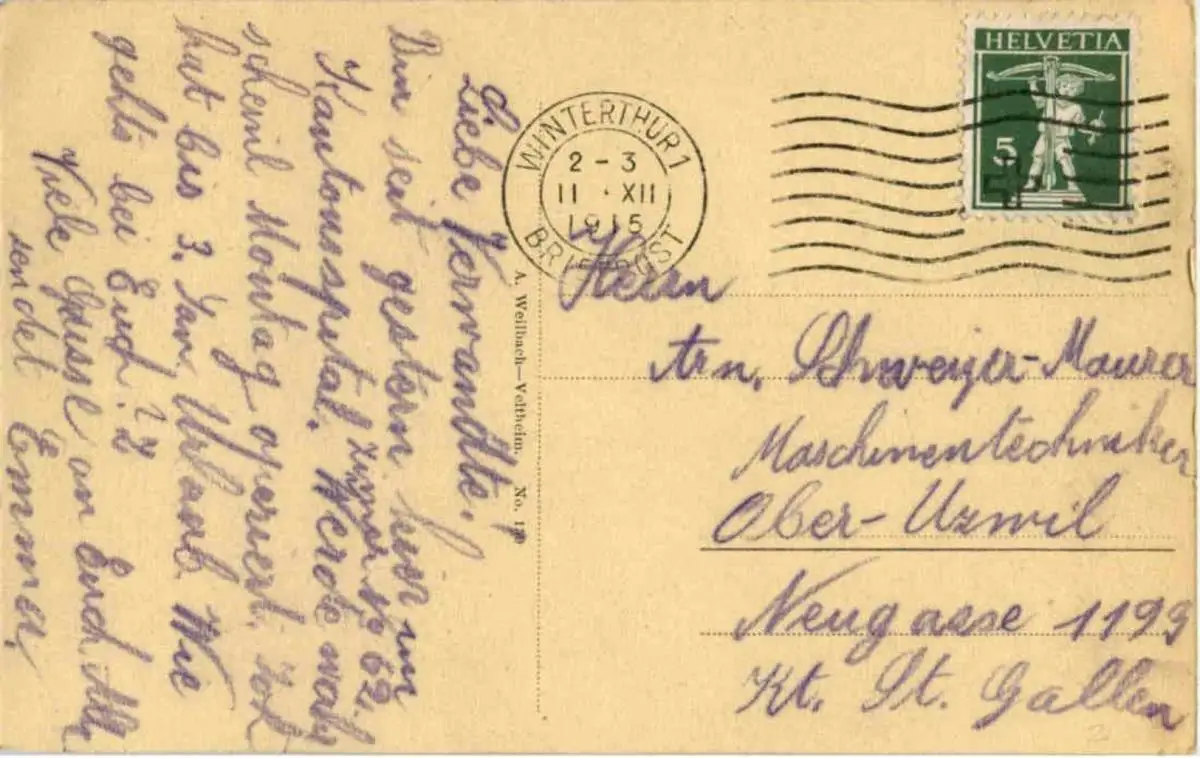 Liebe Verwandte!
Bin seit gestern hier im
Kantonsspital. Zimer No 62.
Werde wahr
scheinl Montag operiert.
hat bis 3. Jan. Urlaub Wie
gehts bei Euch?
Viele Grüsse an Euch Alle
sendet Emma,
A. Weilbach—Veltheim. No. 19
WINTERTHUR 1
2 - 3
11 · XII
1915
BRIEFPOST
HELVETIA
5
Herrn
Arn. Schweizer-Maurer
Maschinentechniker
Ober-Uzwil
Neugasse 1199
Kt. St. Gallen